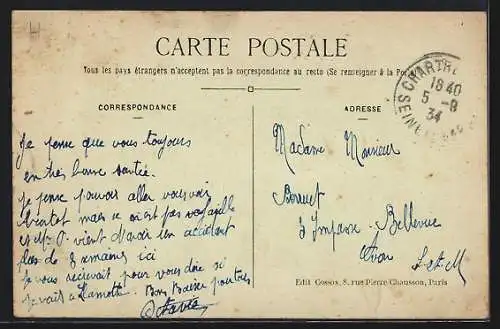 CARTE POSTALE
Tous les pays étrangers n'acceptent pas la correspondance au recto (Se renseigner à la Poste)
CORRESPONDANCE
ADRESSE
CHARTR
18 40
5 -9
34
SEINE
Je pense que vous toujours
en très bonne santée.
Je pense pouvoir aller vous voir
bientot mais ce n'est pas
et vient d'avoir un accident
plus de semaines ici
Je vous pour vous dire si
je vais a Lamotte. Bons Baisers pour tous
Madame Monsieur
Bonnet
3 Impasse Bellevue
Avon S-et-M
Edit Cossos, 8, rue Pierre-Chausson, Paris